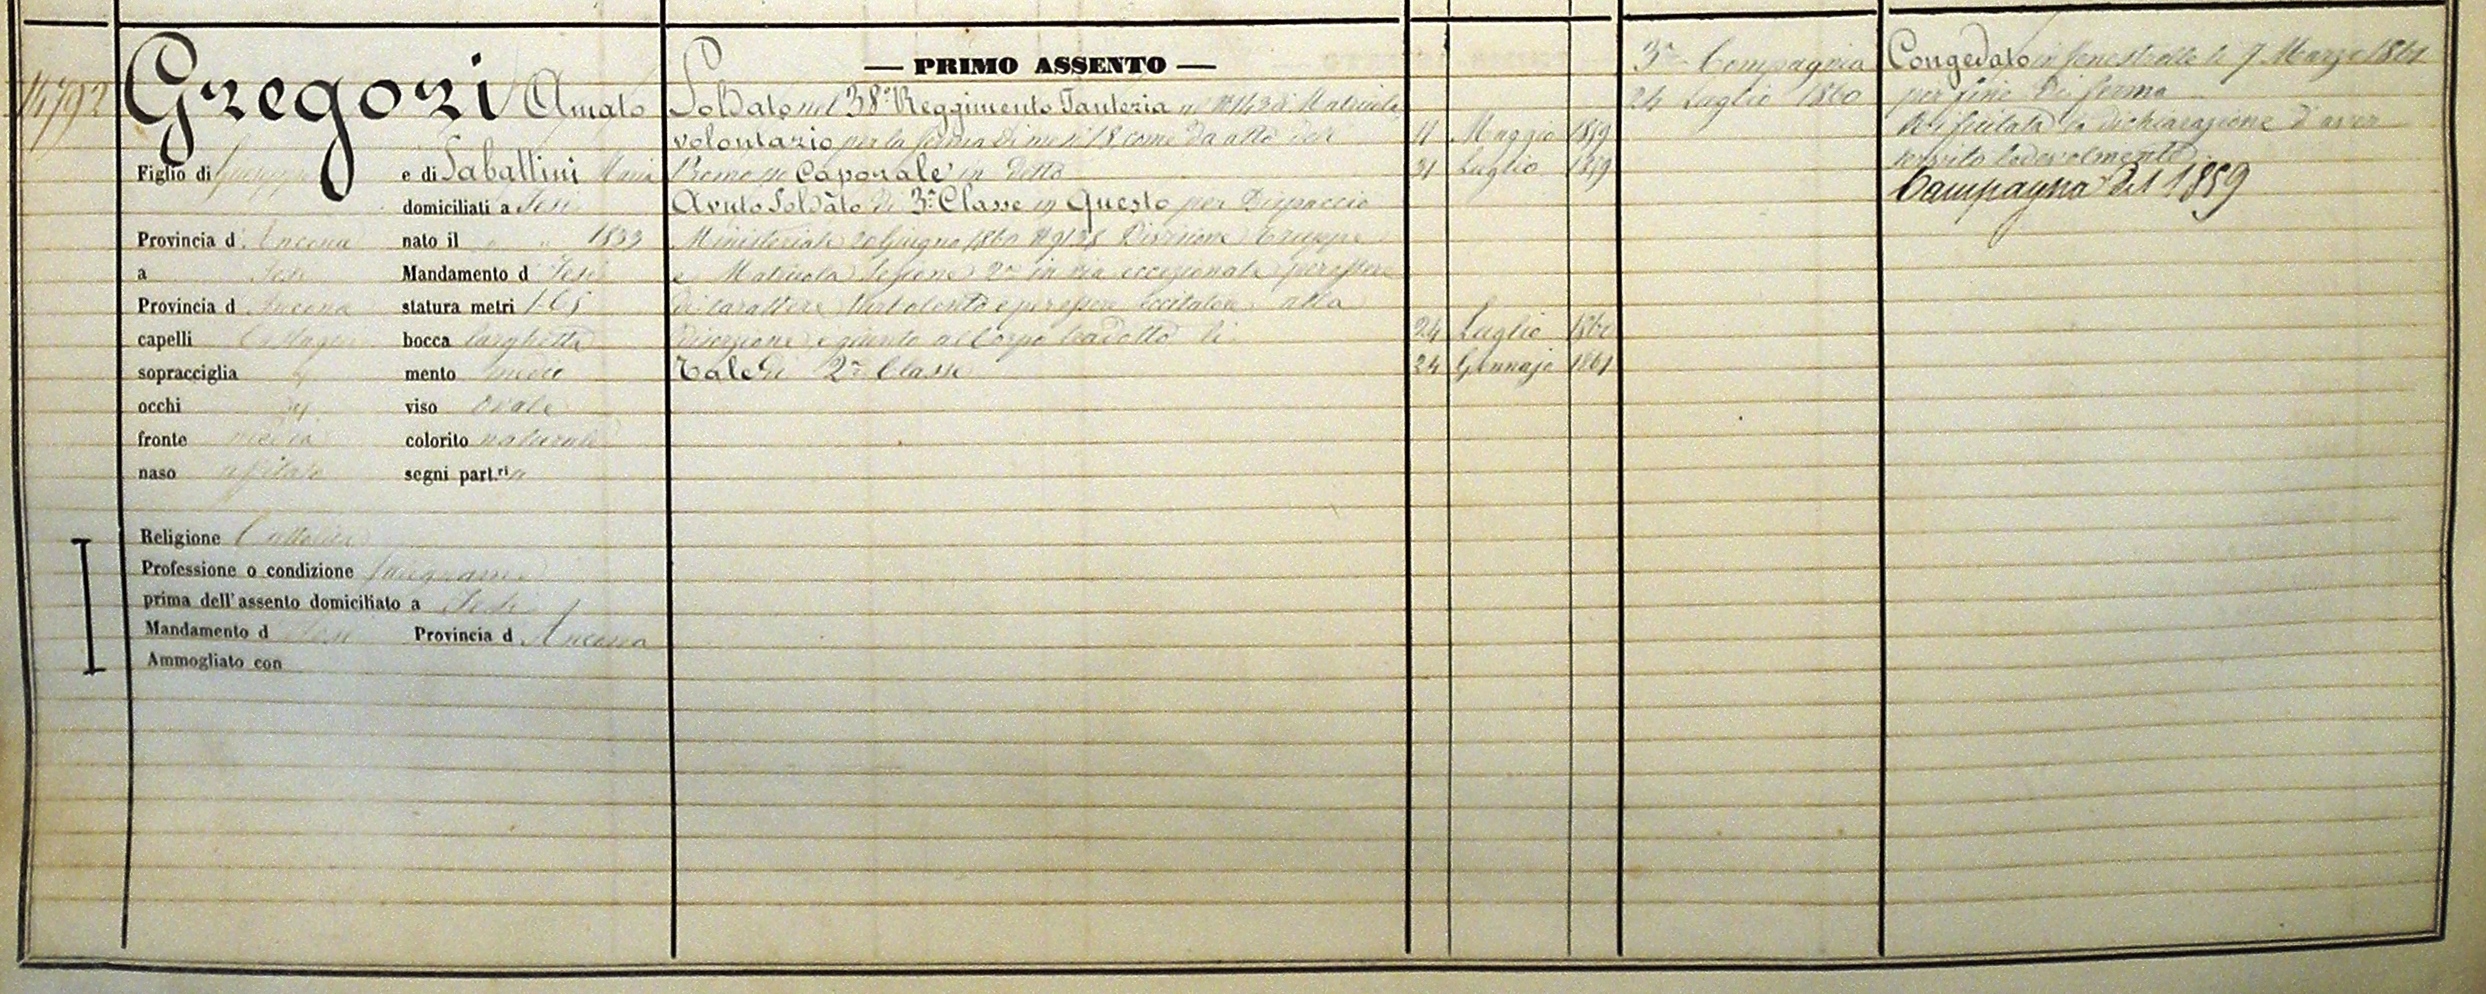 14792
Gregori Amato
Figlio di Giuseppe e di Sabattini Maria
domiciliati a Jesi
Provincia d'Ancona nato il " " 1833
a Jesi Mandamento d Jesi
Provincia d Ancona statura metri 1.65
capelli Castagni bocca larghetta
sopracciglia mento medio
occhi viso ovale
fronte media colorito naturale
naso segni part.ri
Religione Cattolica
Professione o condizione falegname
prima dell'assento domiciliato a Jesi
Mandamento d Jesi Provincia d Ancona
Ammogliato con
— PRIMO ASSENTO —
Soldato nel 38° Reggimento Fanteria al N° 1428 di Matricola
volontario per la ferma di mesi 18 come da atto delli 11 Maggio 1859
Promosso Caporale in detto 31 Luglio 1859
Avuto Soldato di 3a Classe in Questo per Dispaccio
Ministeriale 20 Giugno 1860 N° 9128 Divisione Truppe
e Matricola Sezione 2a in via eccezionale per essere
di carattere turbolento e per essere eccitatore alla
diserzione, e giunto al Corpo tradotto li 24 Luglio 1860
Tale di 2a Classe 24 Gennajo 1861
3a Compagnia
24 Luglio 1860
Congedato in Fenestrelle li 7 Marzo 1861
per fine di ferma
la dichiarazione d'aver
servito lodevolmente
Campagna del 1859